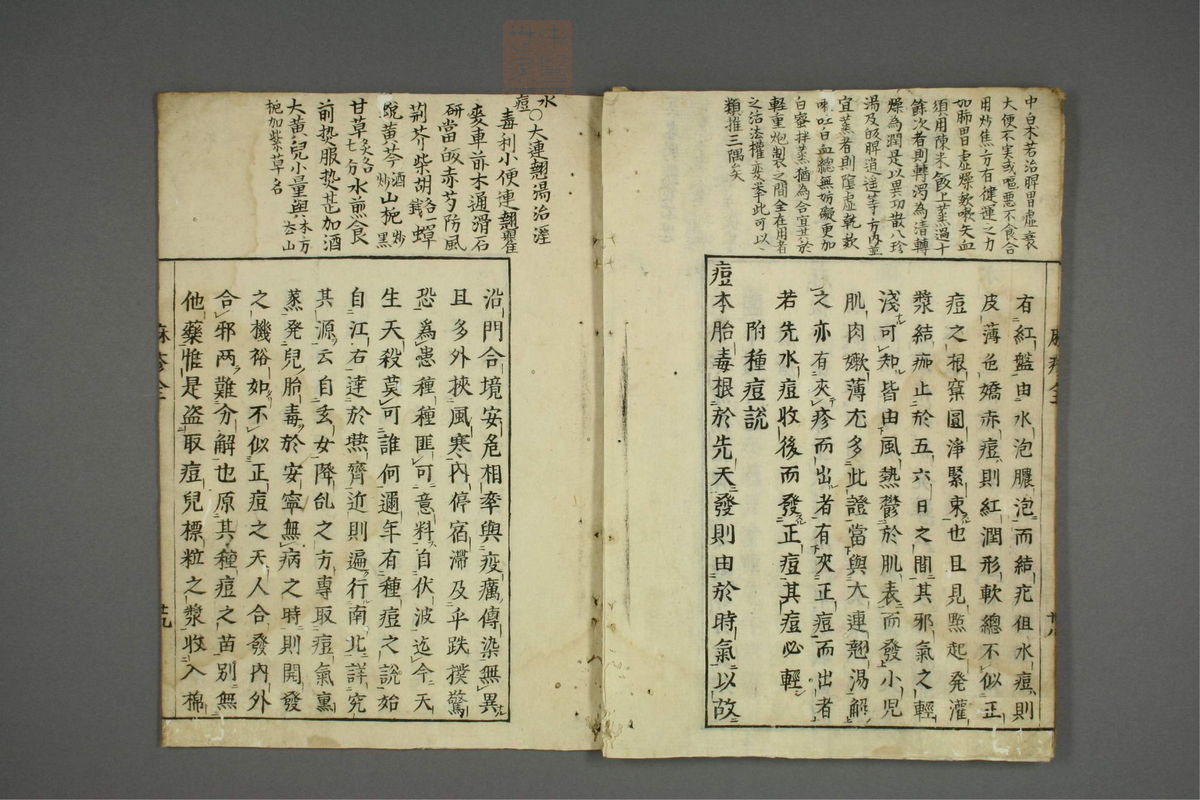 中白朮若治脾胃虛衰
大便不実或嘔悪不食合
用炒焦方有健運之力
如肺胃虛燥欬嗽失血
須用陳米飯上蒸過十
餘次者則轉瀉為清轉
燥為潤是以異功散八珍
湯及皈脾逍遙等方內並
宜蒸者則陰虛乾欬
嗽吐白血總無妨礙更加
白蜜拌蒸猶為合宜其於
輕重炮製之間全在用者
之治法權変擧此可以
類推三隅矣
有紅盤由水泡膿泡而結疕但水痘則
皮薄色嬌赤痘則紅潤形軟總不似正
痘之根窠圓淨緊束也且見點起発灌
漿結痂止於五六日之間其邪氣之輕
淺可知皆由風熱鬱於肌表而發小児
肌肉嫩薄尤多此證當與大連翹湯解
之亦有夾疹而出者有夾正痘而出者
若先水痘收後而發正痘其痘必輕
附種痘說
痘本胎毒根於先天發則由於時氣以故
水痘○大連翹湯治溼
毒利小便連翹瞿
麥車前木通滑石
研當皈赤芍防風
荊芥柴胡各一錢蟬
蛻黄芩酒炒山梔炒黑
甘草各七分水煎食
前热服热甚加酒
大黄兒小量與本方去山
梔加紫草名
沿門合境安危相率與疫癘傳染無異
且多外挾風寒內停宿滯及乎跌撲驚
恐為患種種匪可意料自伏波迄今天
生天殺莫可誰何邇年有種痘之說始
自江右達於燕齊近則遍行南北詳究
其源云自玄女降乩之方專取痘氣熏
蒸発兒胎毒於安寧無病之時則開發
之機裕如不似正痘之天人合發內外
合邪两難分解也原其種痘之苗别無
他藥惟是盗取痘兒標粒之漿收入棉
麻疹全
廿八
麻疹全
廿九